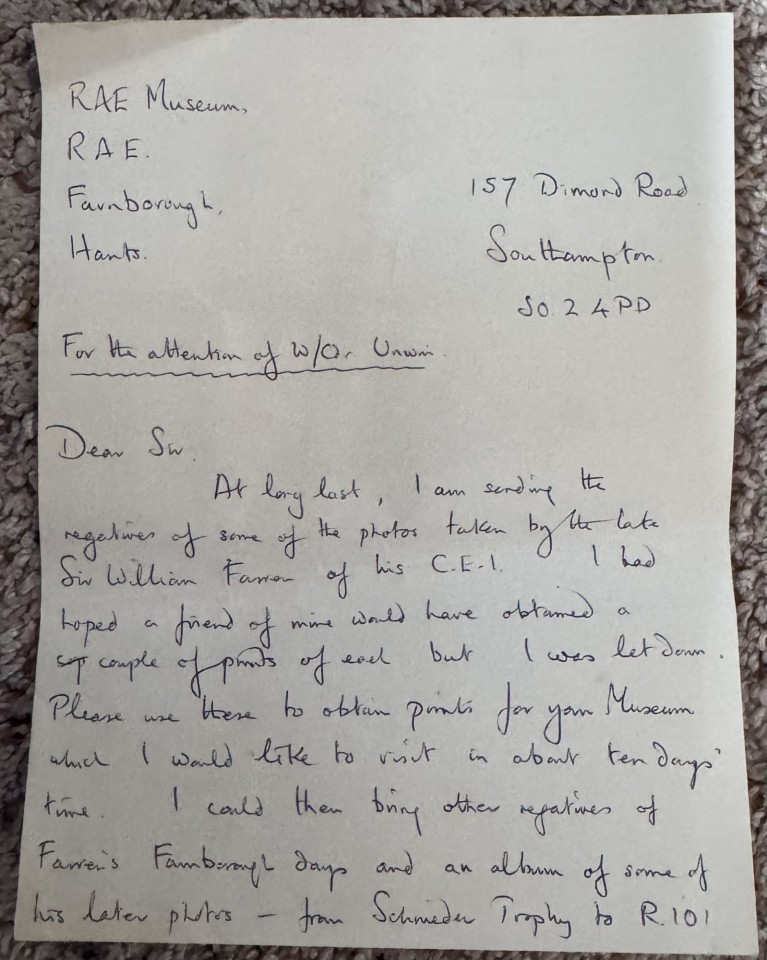 RAE Museum,
R A E.
Farnborough,
Hants.
157 Dimond Road
Southampton.
SO. 2 4PD
For the attention of W/Or Unwin.
Dear Sir.
At long last, I am sending the
negatives of some of the photos taken by the late
Sir William Farren of his C.E.1. I had
hoped a friend of mine would have obtained a
couple of prints of each but I was let down.
Please use these to obtain prints for your Museum
which I would like to visit in about ten days'
time. I could then bring other negatives of
Farren's Farnborough days and an album of some of
his later photos – from Schnieder Trophy to R.101